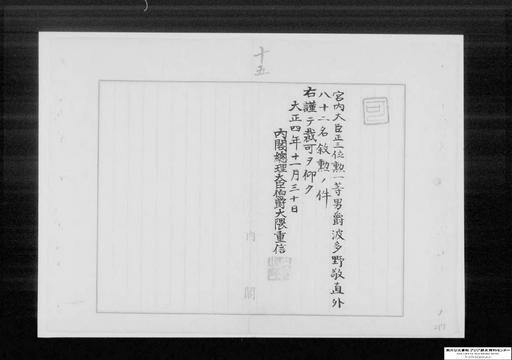 十五
可
宮内大臣正三位勲一等男爵波多野敬直外
八十二名敘勲ノ件
右謹テ裁可ヲ仰ク
大正四年十一月三十日
内閣總理大臣伯爵大隈重信
内閣